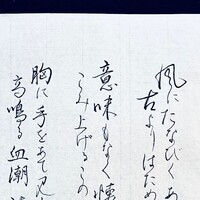 風にたなびくあ
古よりはため
意味もなく懐
こみ上げるこの
胸に手をあて見
高鳴る血潮